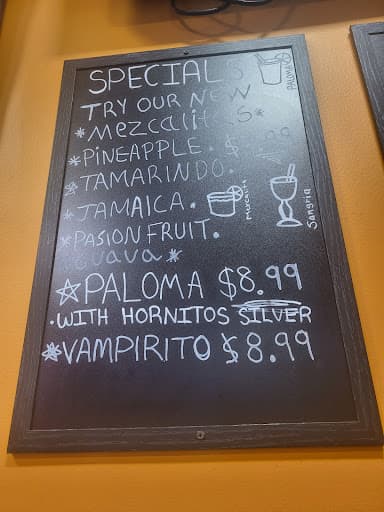 SPECIALS
PALOMA
TRY OUR NEW
*mezcalitas*
*PINEAPPLE. $
*TAMARINDO.
*JAMAICA.
Mezcalita
Sangria
*PASION FRUIT.
Guava*
☆PALOMA $8.99
.WITH HORNITOS SILVER
*VAMPIRITO $8.99